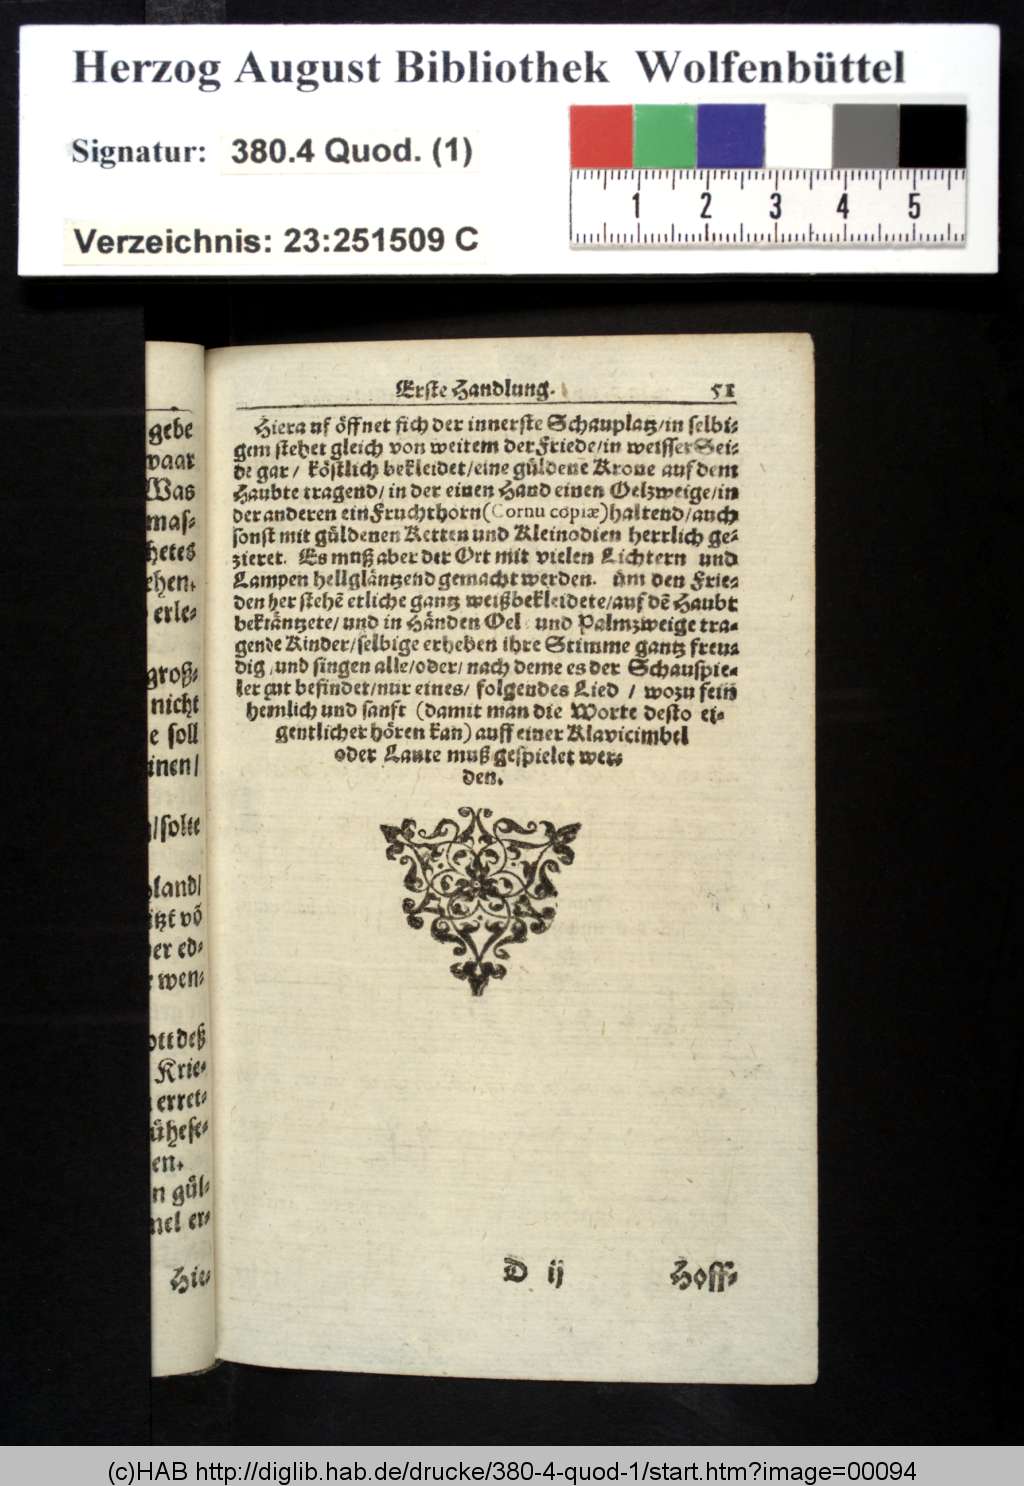 Herzog August Bibliothek Wolfenbüttel
Signatur: 380.4 Quod. (1)
Verzeichnis: 23:251509 C
1 2 3 4 5
gebe
waar
Was
mas-
hetes
ehen.
erle-
groß-
nicht
e soll
inen/
/solte
land/
itzt võ
er ed-
wen-
ott deß
Krie-
erret-
en.
n gül-
mel er-
Hie-
Erste Handlung. 51
Hierauf öffnet sich der innerste Schauplatz/in selbi-
gem stehet gleich von weitem der Friede/in weisser Sei-
de gar/ köstlich bekleidet/eine güldene Krone auf dem
Haubte tragend/ in der einen Hand einen Oelzweige/in
der anderen ein Fruchthorn(Cornu copiæ)haltend/auch
sonst mit güldenen Ketten und Kleinodien herrlich ge-
zieret. Es muß aber der Ort mit vielen Lichtern und
Lampen hellgläntzend gemacht werden. üm den Frie-
den her stehẽ etliche gantz weißbekleidete/auf dẽ Haubt
bekräntzete/ und in Händen Oel und Palmzweige tra-
gende Kinder/selbige erheben ihre Stimme gantz freu-
dig/und singen alle/oder/ nach deme es der Schauspie-
ler gut befindet/nur eines/ folgendes Lied / wozu fein
heimlich und sanft (damit man die Worte desto ei-
gentlicher hören kan) auff einer Klavicimbel
oder Laute muß gespielet wer-
den.
D ij Hoff-
(c)HAB http://diglib.hab.de/drucke/380-4-quod-1/start.htm?image=00094